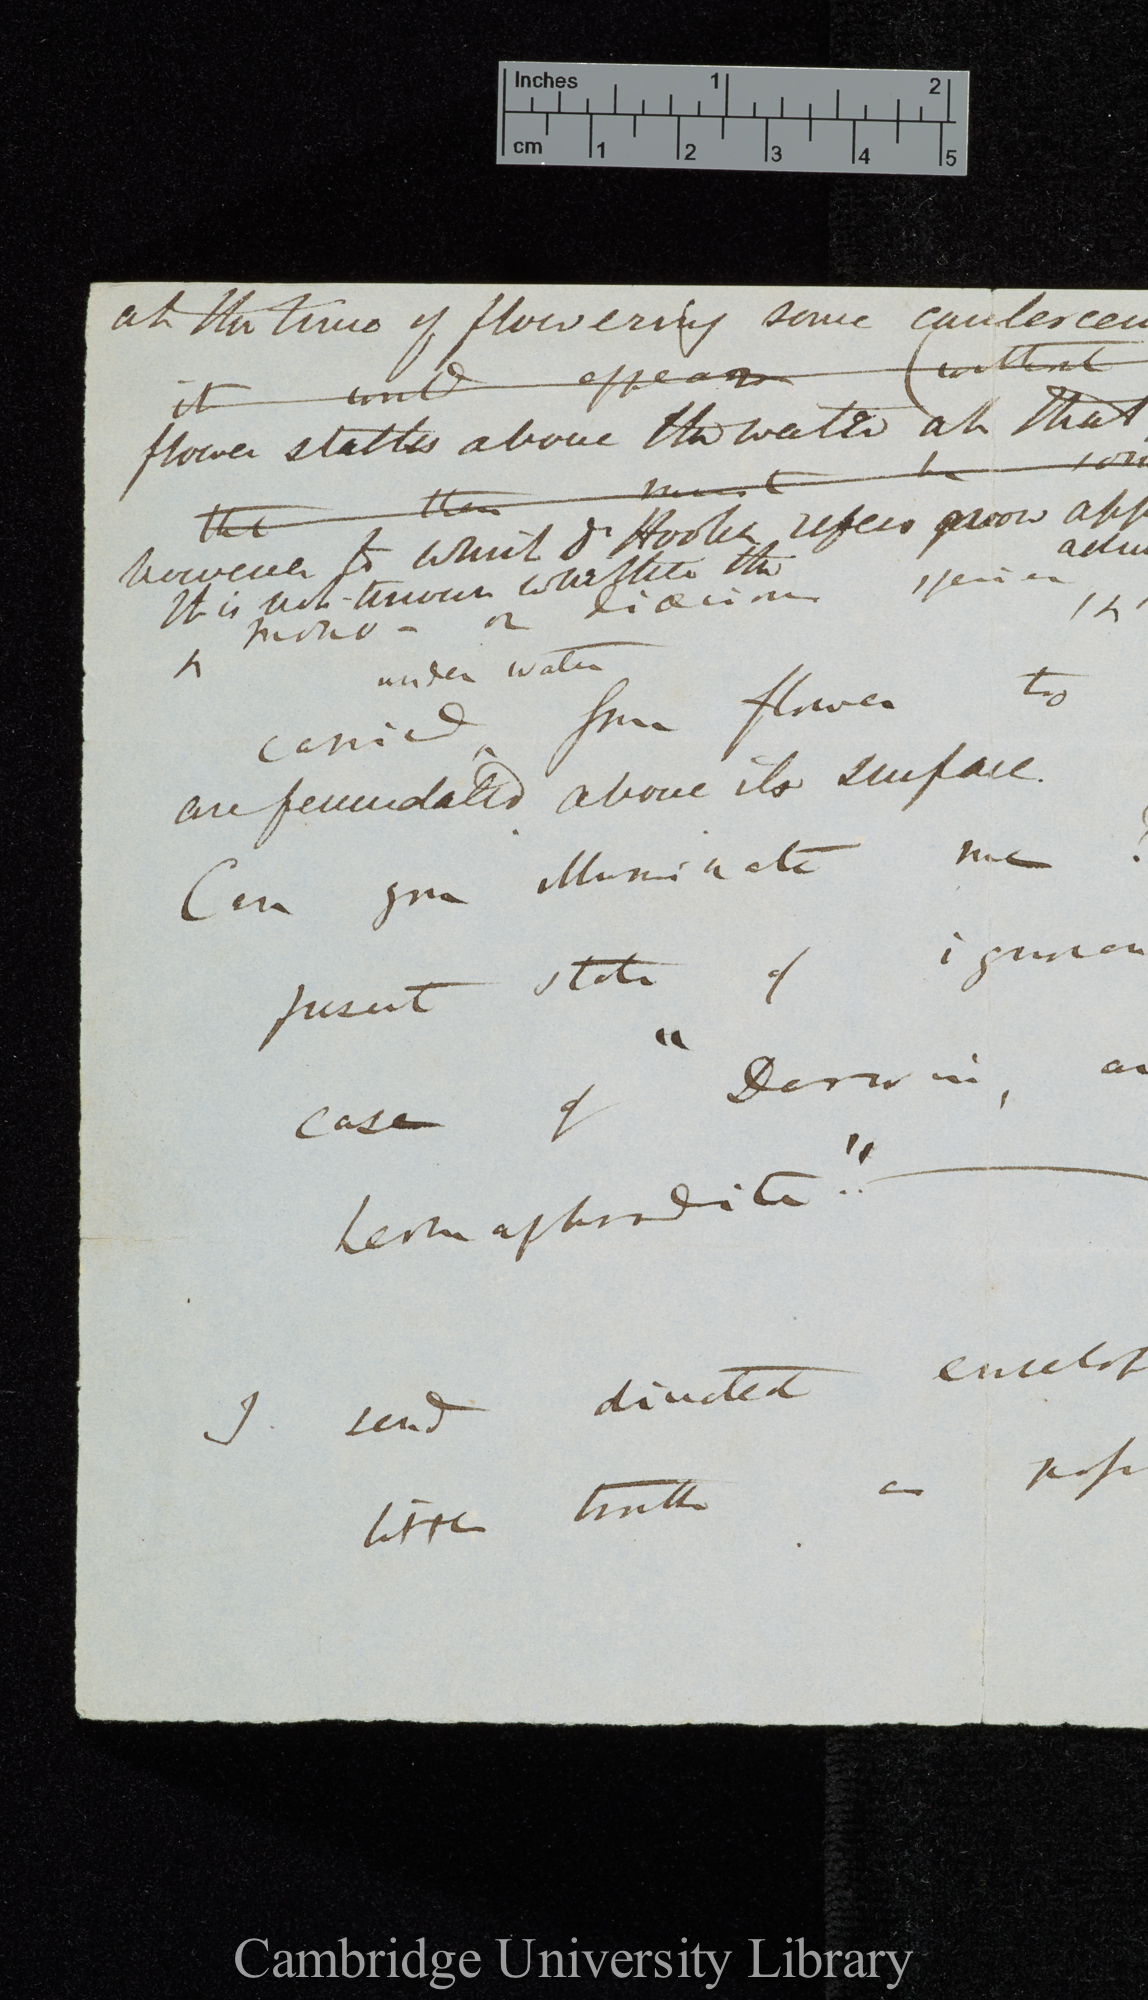 Inches 1 2
cm 1 2 3 4 5
at the time of flowering some caulescen
it would appear (without
flower stalks above the water at that
the then must be
however to which Dr Hooker refers grow app
It is not known whether the
mono- or diœcious species
under water
carried from flower to
are fecundated above its surface.
Can you illuminate me ?
present state of ignoran
case of " Darwin, an
hermaphrodite"..
I send directed envelop
little trouble as
Cambridge University Library